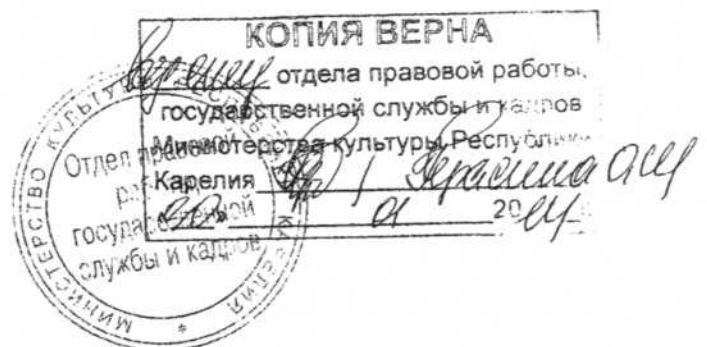 КОПИЯ ВЕРНА
отдела правовой работы,
государственной службы и кадров
Министерства культуры Республики
Карелия
01 20 14
МИНИСТЕРСТВО КУЛЬТУРЫ РЕСПУБЛИКИ КАРЕЛИЯ *
Отдел правовой
работы,
государственной
службы и кадров